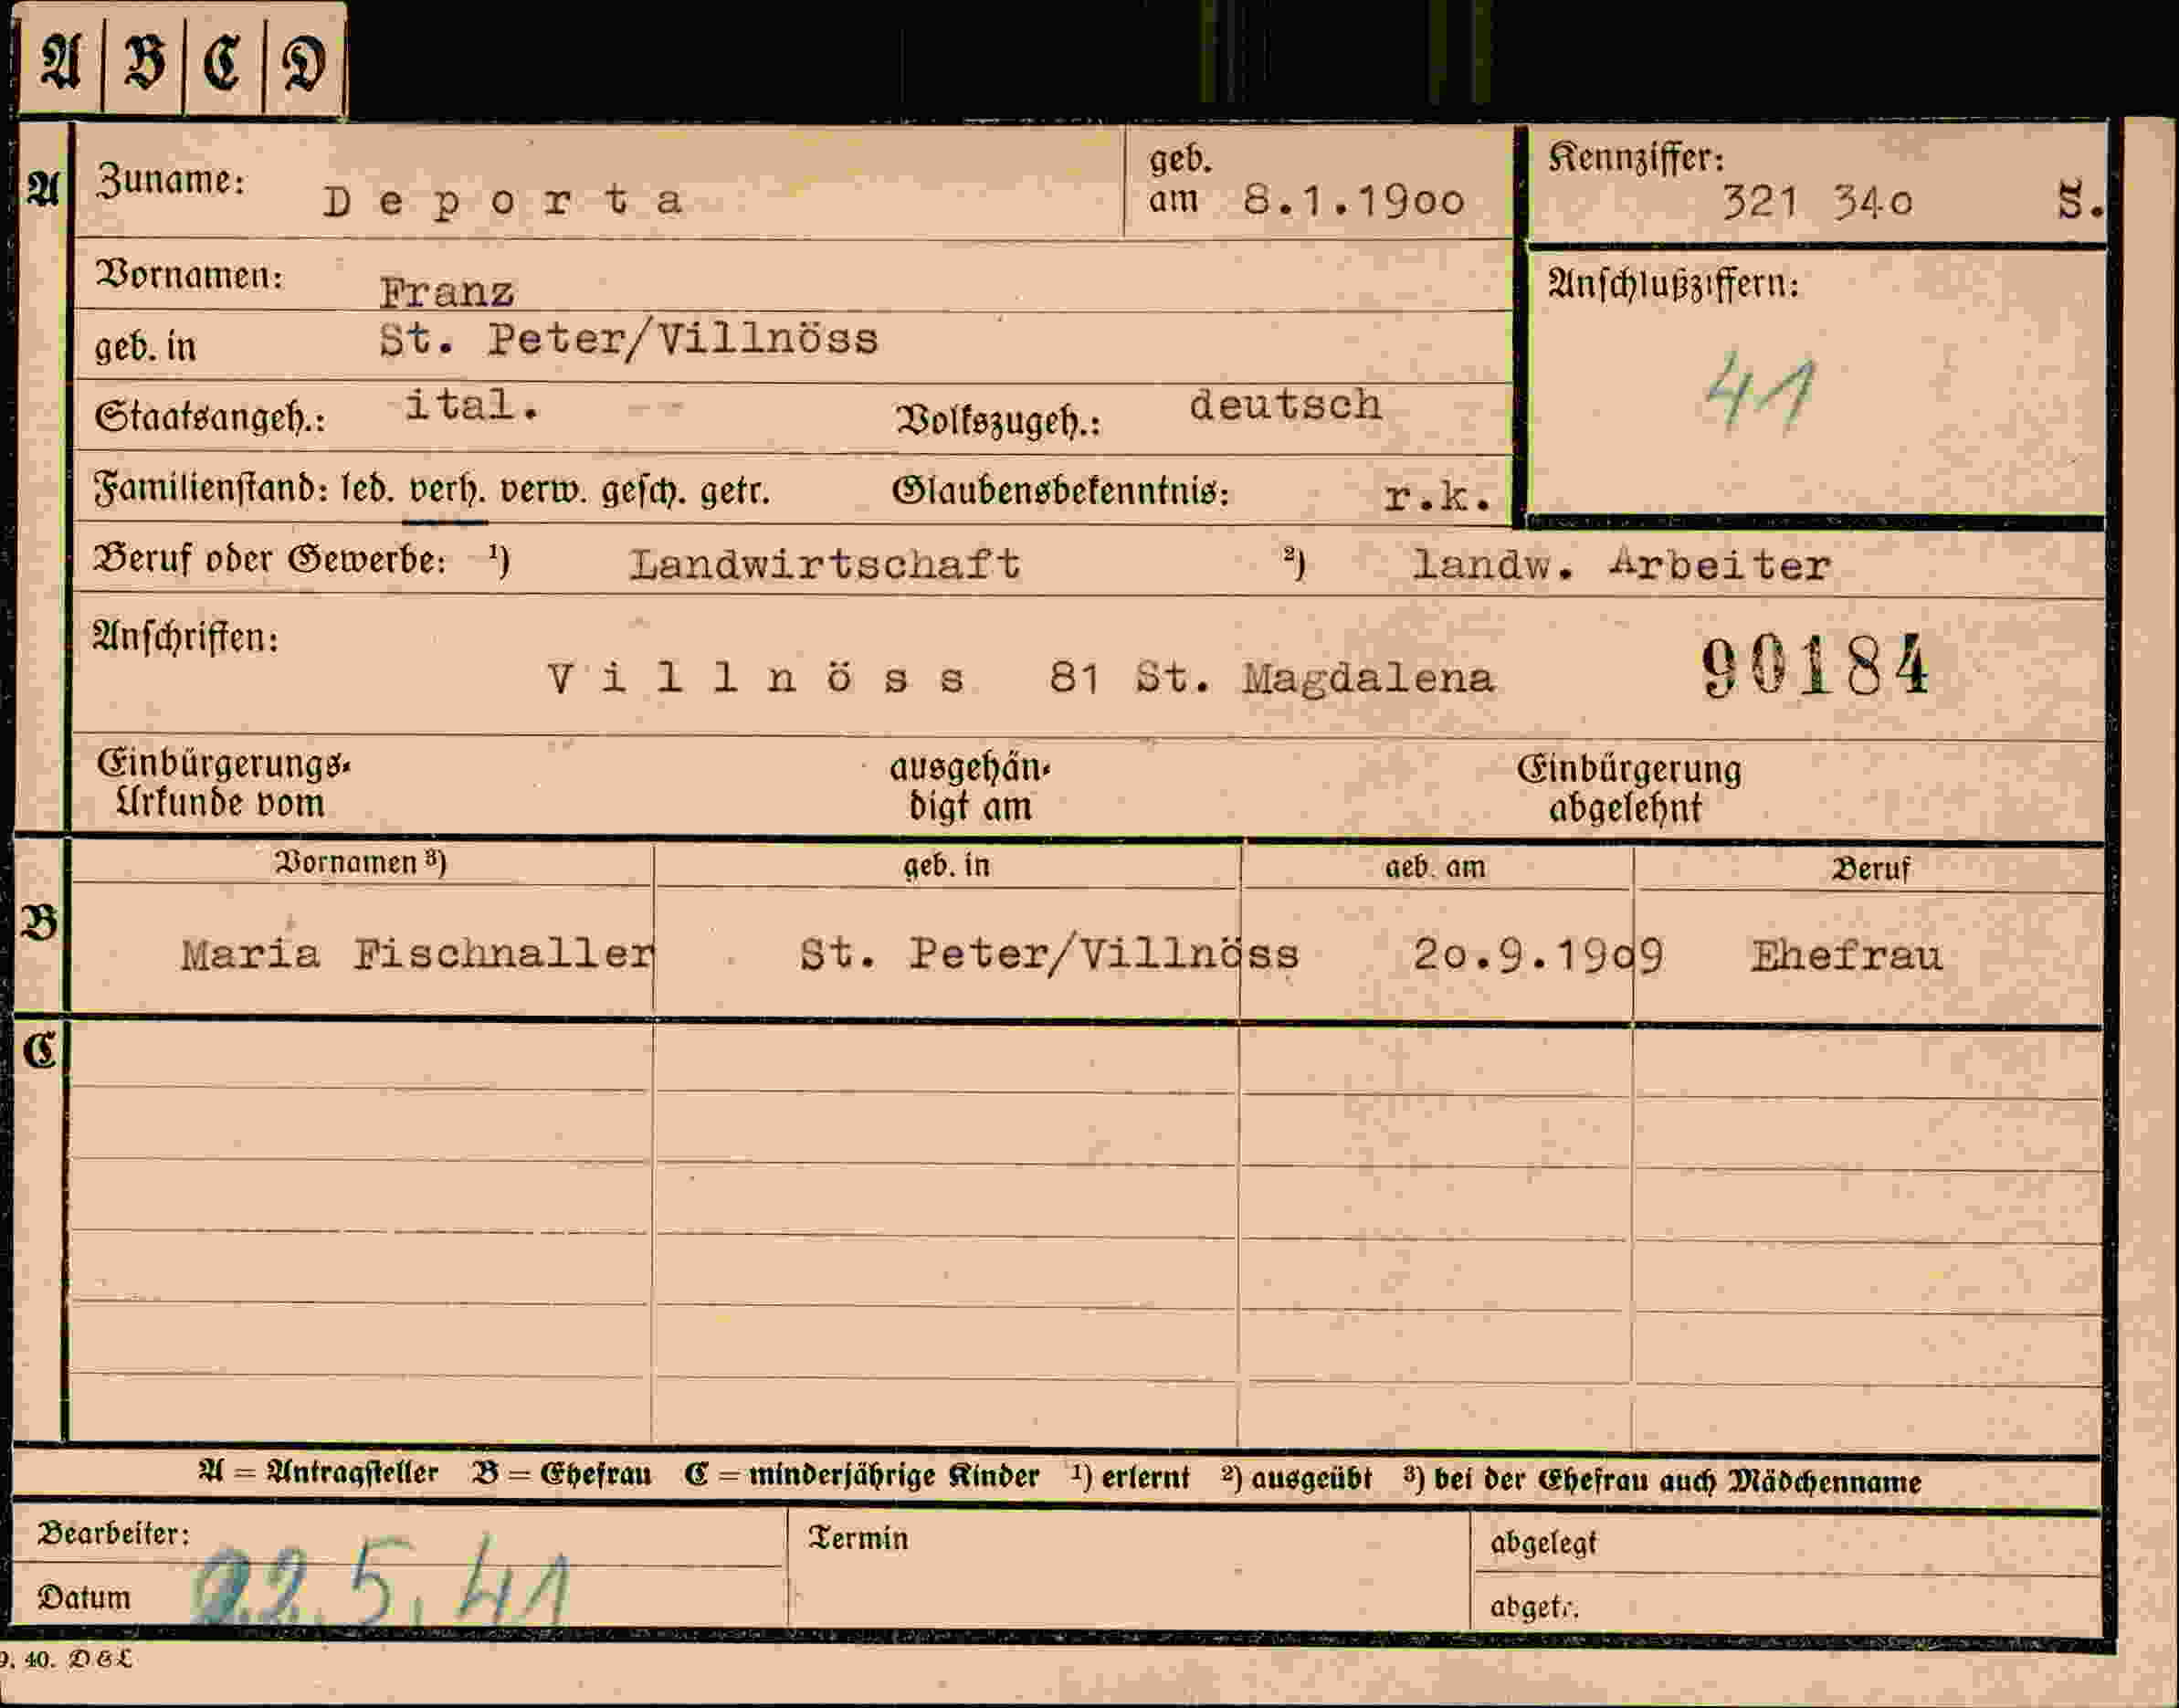 A B C D
A Zuname: Deporta geb. am 8.1.1900 Kennziffer: 321 340 S.
Vornamen: Franz Anschlußziffern:
geb. in St. Peter/Villnöss
41
Staatsangeh.: ital. Volkszugeh.: deutsch
Familienstand: led. verh. verw. gesch. getr. Glaubensbekenntnis: r.k.
Beruf oder Gewerbe: ¹) Landwirtschaft ²) landw. Arbeiter
Anschriften:
Villnöss 81 St. Magdalena 90184
Einbürgerungs- ausgehän- Einbürgerung
Urkunde vom digt am abgelehnt
Vornamen ³) geb. in geb. am Beruf
B Maria Fischnaller St. Peter/Villnöss 20.9.1909 Ehefrau
C
A = Antragsteller B = Ehefrau C = minderjährige Kinder ¹) erlernt ²) ausgeübt ³) bei der Ehefrau auch Mädchenname
Bearbeiter: Termin abgelegt
Datum 22.5.41 abgetr.
9. 40. D & L